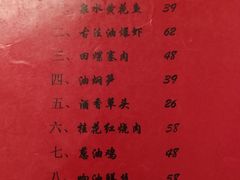 泉水黄花鱼 39
二、古法油爆虾 62
三、田螺塞肉 48
四、油焖笋 39
五、酒香草头 26
六、桂花红烧肉 58
七、葱油鸡 48
八、 58